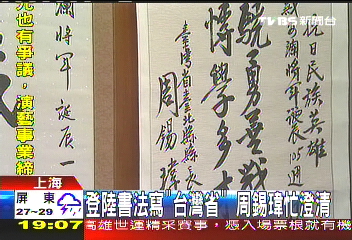 TVBS 新聞台
元也有爭議，演藝事業締
瀾將軍誕辰一
抗日民族英雄
瀾將軍誕辰105週
驍勇善戰
博學多
臺灣省臺北縣縣長
周錫瑋
上海
屏東
27~29
登陸書法寫"台灣省" 周錫瑋忙澄清
19:07
高雄世運精采賽事，憑入場票根就有機